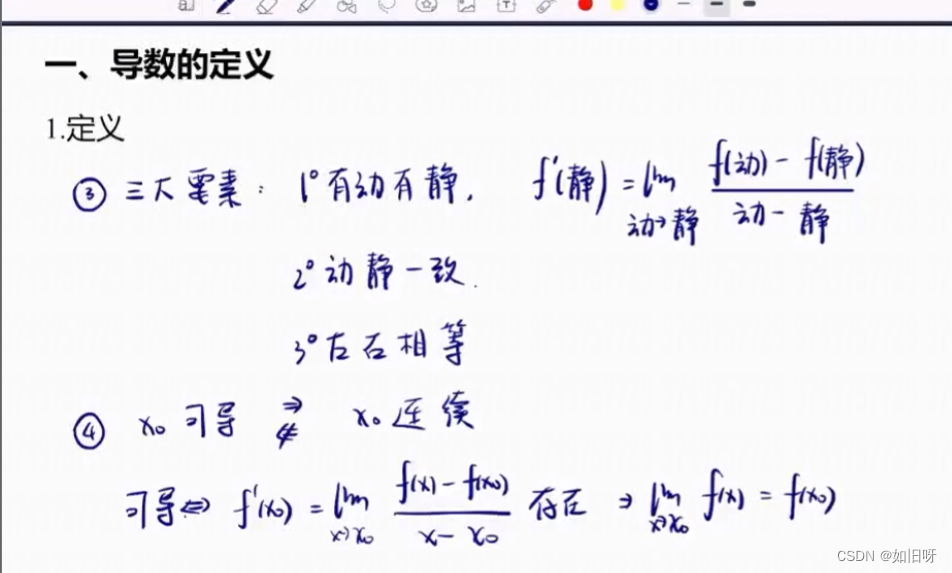 一、导数的定义
1.定义
③ 三大要素: 1° 有动有静, f'(静) = lim_{动→静} (f(动) - f(静))/(动 - 静)
2° 动静一致.
3° 左右相等
④ x₀ 可导 ⇒ ⇍ x₀ 连续
可导 ⇔ f'(x₀) = lim_{x→x₀} (f(x) - f(x₀))/(x - x₀) 存在 ⇒ lim_{x→x₀} f(x) = f(x₀)
CSDN @如旧呀